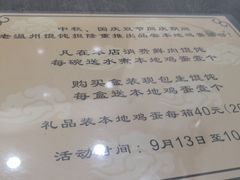 中秋、国庆双节同庆期间
老温州馄饨报隆重推出品尝本地鸡蛋
凡在本店消费鲜肉馄饨
每碗送水煮本地鸡蛋壹个
购买盒装现包生馄饨
每盒送本地鸡蛋壹个
礼品装本地鸡蛋每箱40元(2
活动时间：9月13日至10